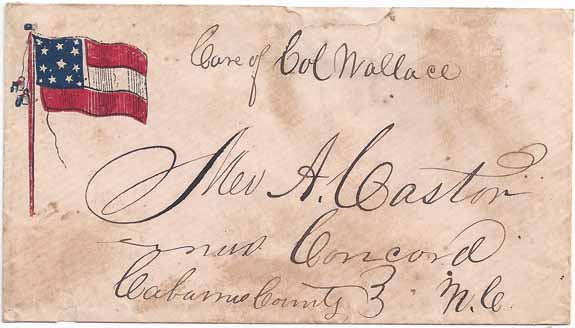 Care of Col Wallace
A. Castor
near Concord
Cabarrus County N.C.